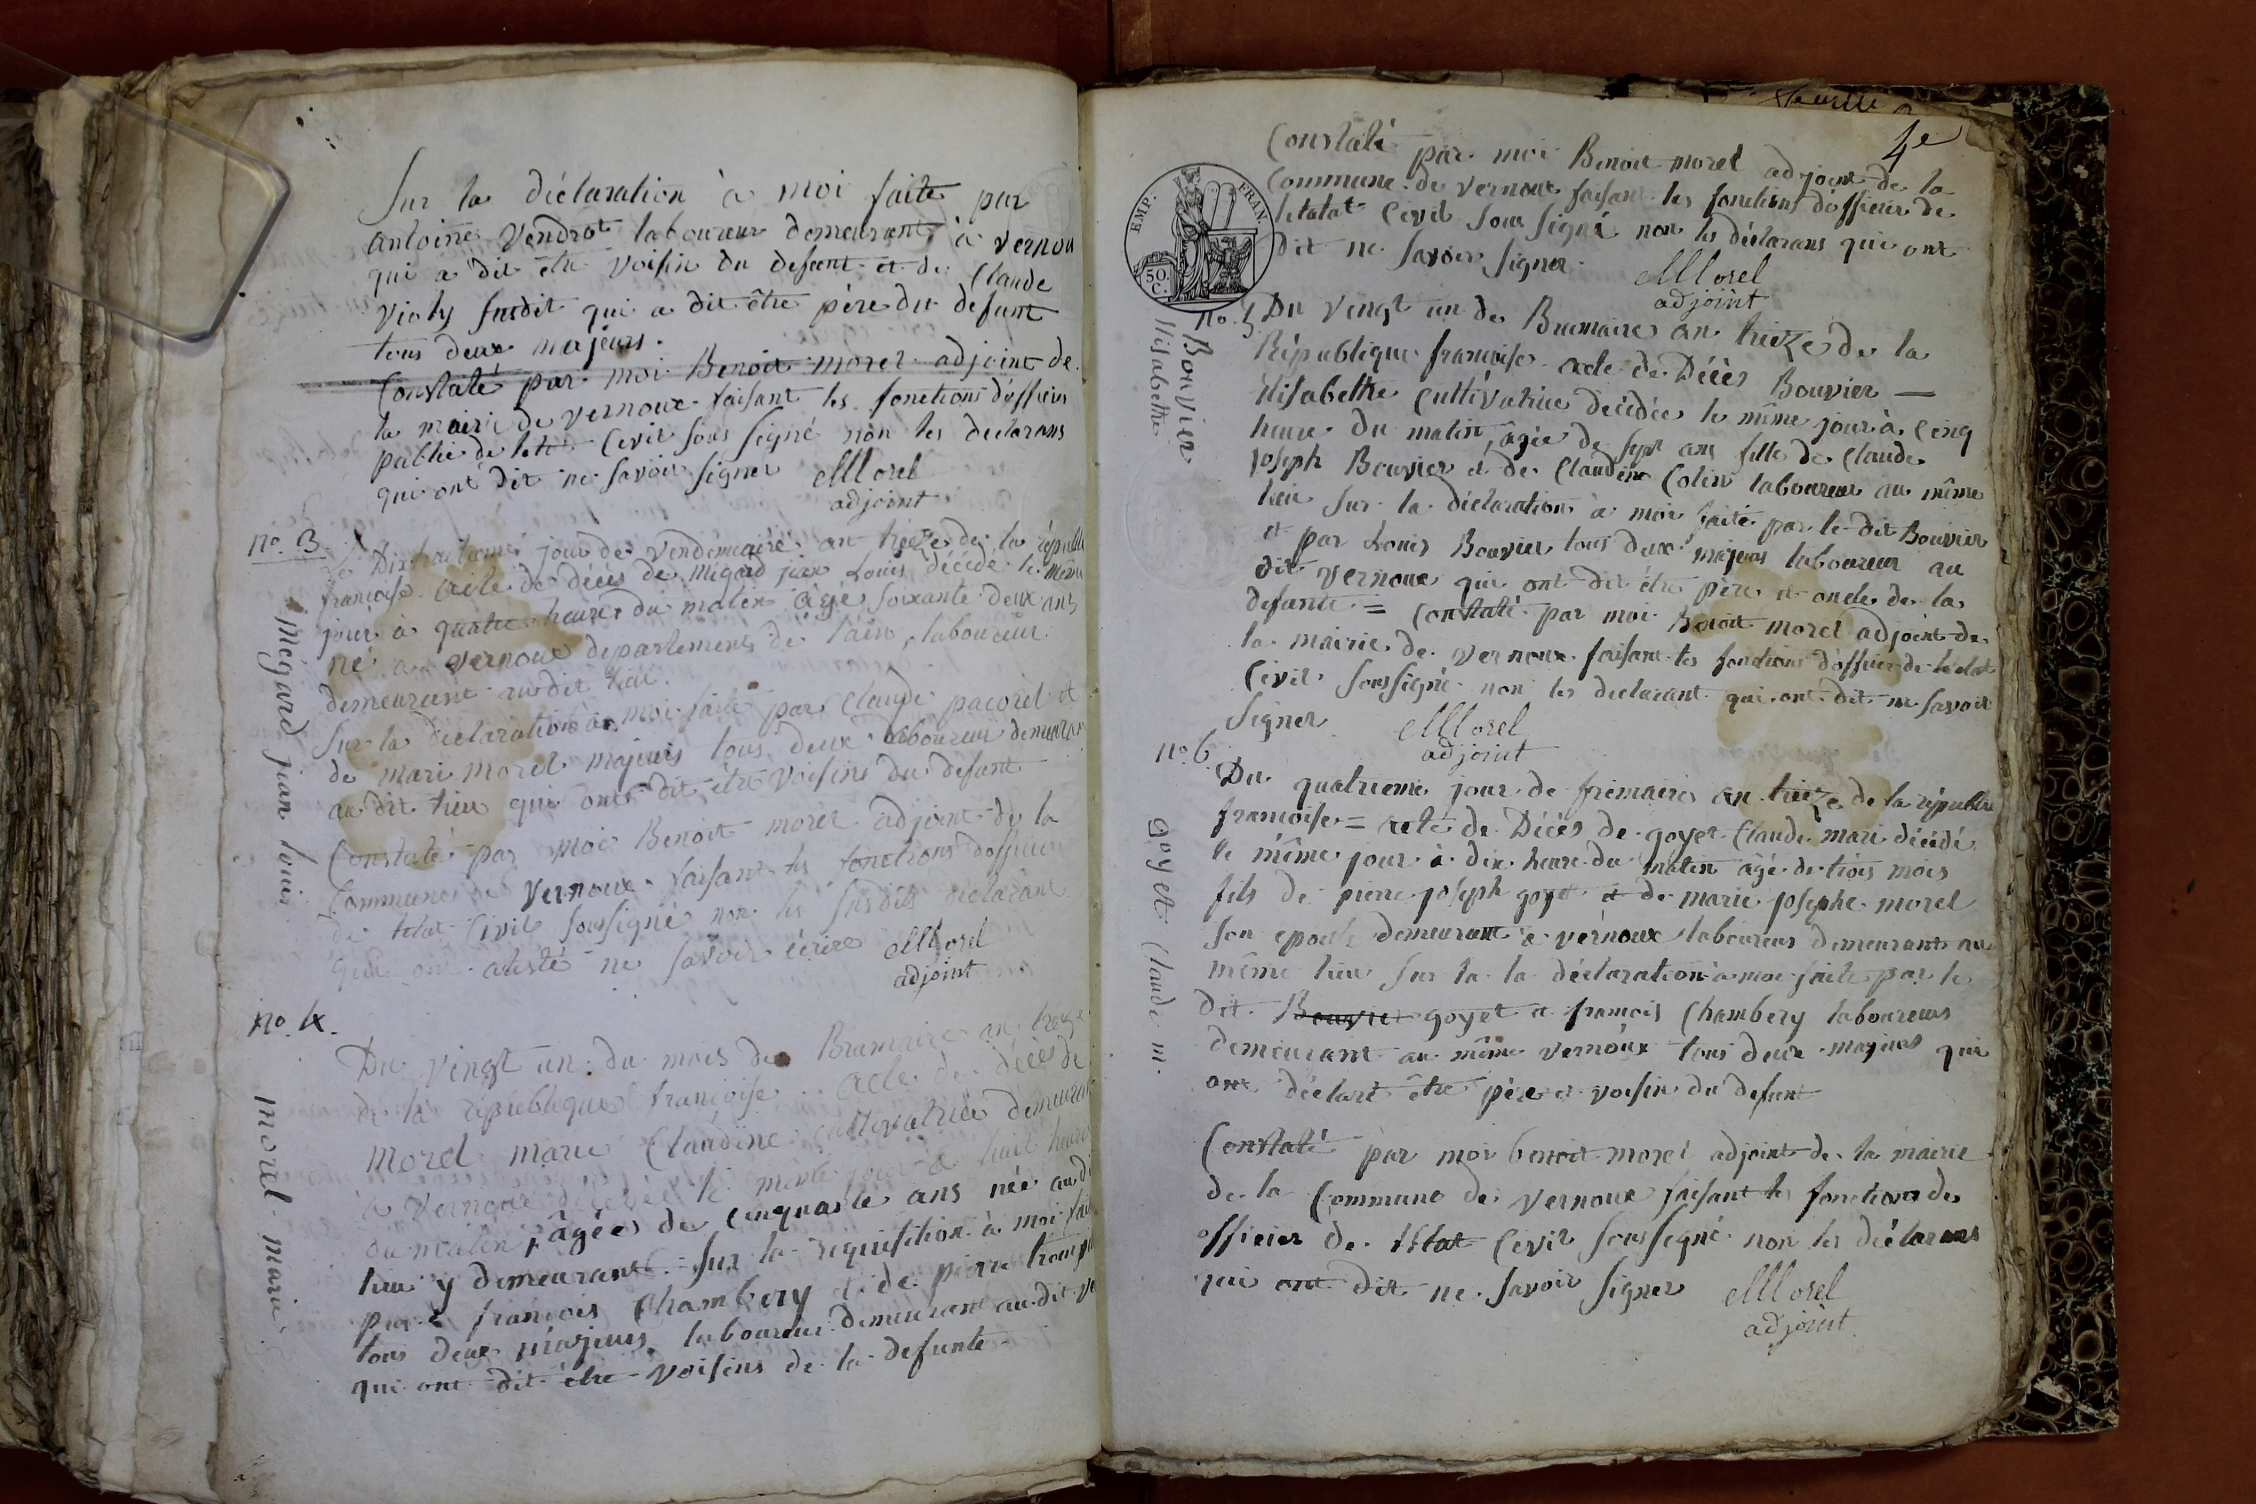 Sur la déclaration à moi faite par
antoine Vendrot laboureur demeurant à vernou
qui a dit être voisin du defunt et de Claude
Violy susdit qui a dit être père du defunt
tous deux majeurs.
Constaté par moi Benoit morel adjoint de
la mairie de vernoux faisant les fonctions d'officier
public de letat Civil sous signé non les declarans
qui ont dit ne savoir signer
Morel
adjoint
no. 3.
mégard jean louis
Le Dix huitieme jour de vendemiaire an treize de la républi
francoise acte de décès de mégard jean Louis décédé le même
jour à quatre heure du matin âgé soixante deux ans
né a vernoux departement de l'ain, laboureur
demeurant au dit lieu.
Sur la déclaration à moi faite par Claude pacoret et
de mari morel majeurs tous deux laboureur demeurant
au dit lieu qui ont dit être voisins du defunt
Constaté par moi Benoit morel adjoint de la
Commune de vernoux faisant les fonctions d'officier
de letat Civil soussigné non les susdits déclarant
qui ont atesté ne savoir écrire
Morel
adjoint
no. 4.
morel marie
Du vingt un du mois de Brumaire an treize
de la république françoise acte de décès de
morel marie Claudine cultivatrice demeurant
à vernoux décédée le même jour à huit heures
du matin, âgée de cinquante ans née au di
lieu y demeurant. Sur la requisition à moi fai
par francois Chambery et de pierre
tous deux majeurs laboureur demeurant au dit ve
qui ont dit être voisins de la defunte
feuille
4e
EMP. FRAN.
50. C.
Constaté par moi Benoit morel adjoint de la
Commune de vernoux faisant les fonctions d'officier de
letatat Civil sous signé non les déclarans qui ont
dit ne savoir signer.
Morel
adjoint
no. 5
Bouvier
Elisabethe
Du vingt un de Brumaire an treize de la
République francoise acte de Décès Bouvier —
Elisabethe Cultivatrice décédée le même jour à Cinq
heure du matin, âgée de sept ans fille de Claude
joseph Bouvier et de Claudine Colin laboureur au même
lieu sur la déclaration à moi faite par le dit Bouvier
et par Louis Bouvier tous deux majeurs laboureur au
dit vernoux qui ont dit être père et oncle de la
defunte = Constaté par moi Benoit morel adjoint de
la mairie de vernoux faisant les fonctions d'officier de letat
Civil soussigné non les declarant qui ont dit ne savoir
Signer
Morel
adjoint
no. 6.
goyet Claude m.
Du quatrieme jour de frimaire an treize de la républi
francoise = acte de Décès de goyet Claude mari décédé
le même jour à dix heure du matin âgé de trois mois
fils de pierre joseph goyet et de marie josephe morel
son epouse demeurant a vérnoux laboureur demeurant au
même lieu Sur la la déclaration à moi faite par le
dit Bouvier goyet a francois Chambery laboureur
demeurant au même vernoux tous deux majeurs qui
ont déclaré être père et voisin du defunt
Constaté par moi benoit morel adjoint de la mairie
de la Commune de vernoux faisant les fonctions de
officier de létat Civil soussigné non les déclarans
qui ont dit ne savoir signer
Morel
adjoint.